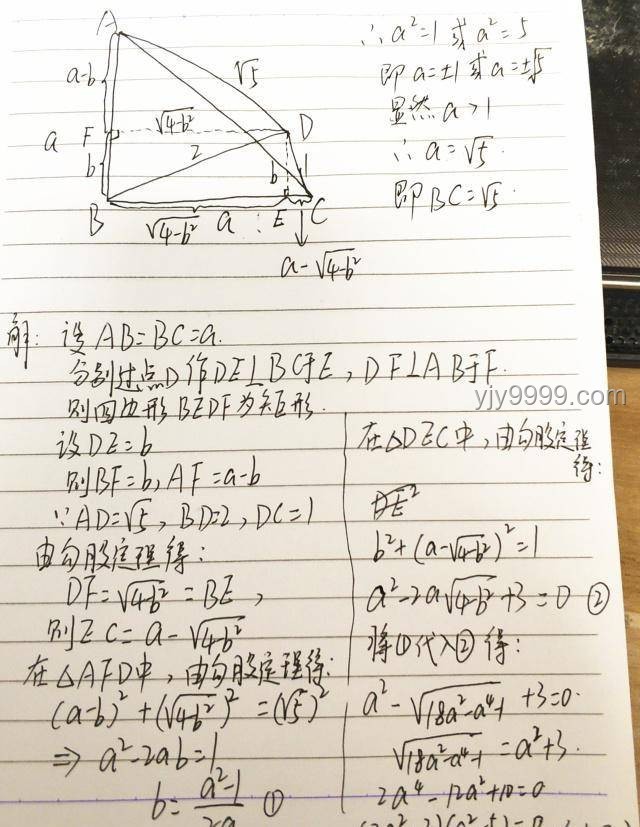 A
a-b
√5
√(4-b²)
a
F
D
2
b
b
1
B
√(4-b²)
a
E
C
a-√(4-b²)
∴ a²=1 或 a²=5
即 a=±1 或 a=±√5
显然 a>1
∴ a=√5.
即 BC=√5.
解: 设 AB=BC=a.
分别过点D作DE⊥BC于E, DF⊥AB于F.
则四边形BEDF为矩形.
yjy9999.com
设DE=b
则BF=b, AF=a-b
∵AD=√5, BD=2, DC=1
由勾股定理得:
DF=√(4-b²)=BE,
则EC=a-√(4-b²)
在△AFD中, 由勾股定理得:
(a-b)²+(√(4-b²))²=(√5)²
⇒ a²-2ab=1
b=(a²-1)/2a ①
在△DEC中, 由勾股定理
得:
DE²
b²+(a-√(4-b²))²=1
a²-2a√(4-b²)+3=0 ②
将①代入②得:
a²-√(18a²-a⁴-1)+3=0.
√(18a²-a⁴-1)=a²+3.
2a⁴-12a²+10=0
(2a²-2)(a²-5)=0